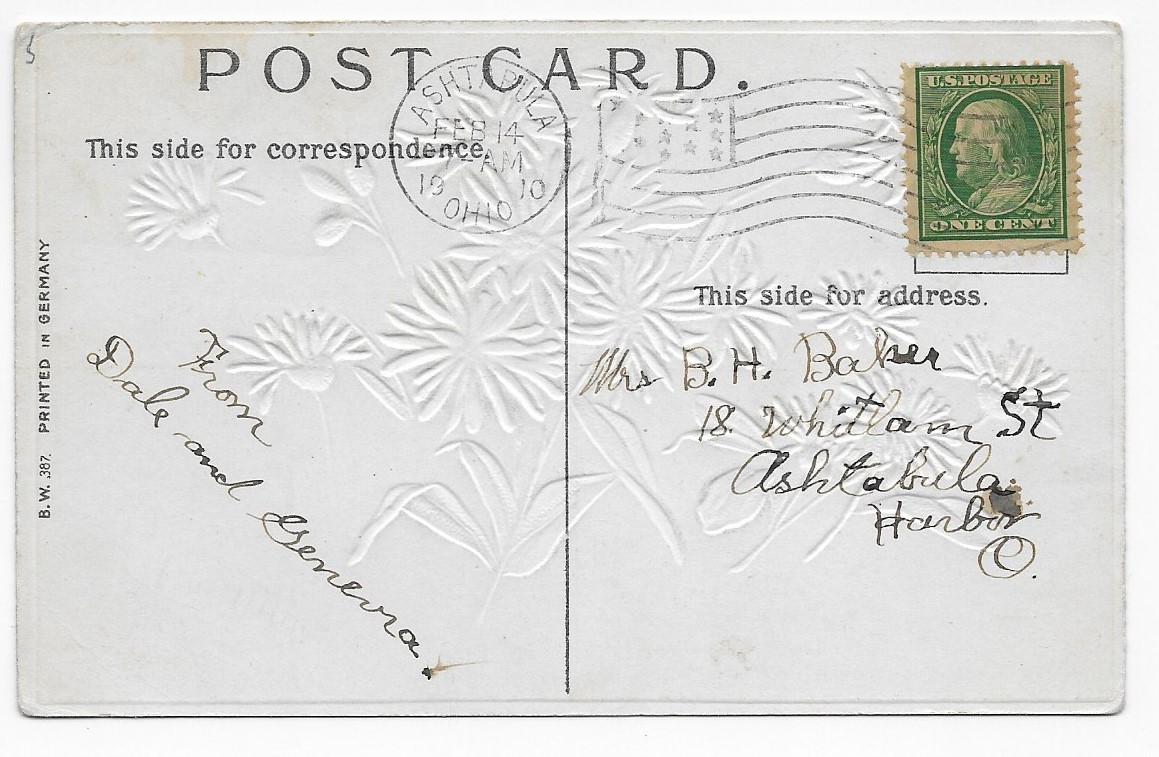 5
POST CARD.
ASHTABULA
FEB 14
AM
1910
OHIO
U.S. POSTAGE
ONE CENT
This side for correspondence
This side for address.
B.W. 387. PRINTED IN GERMANY
From
Dale and Genevra.
Mrs B. H. Baker
18 Whitlam St
Ashtabula
Harbor
O.